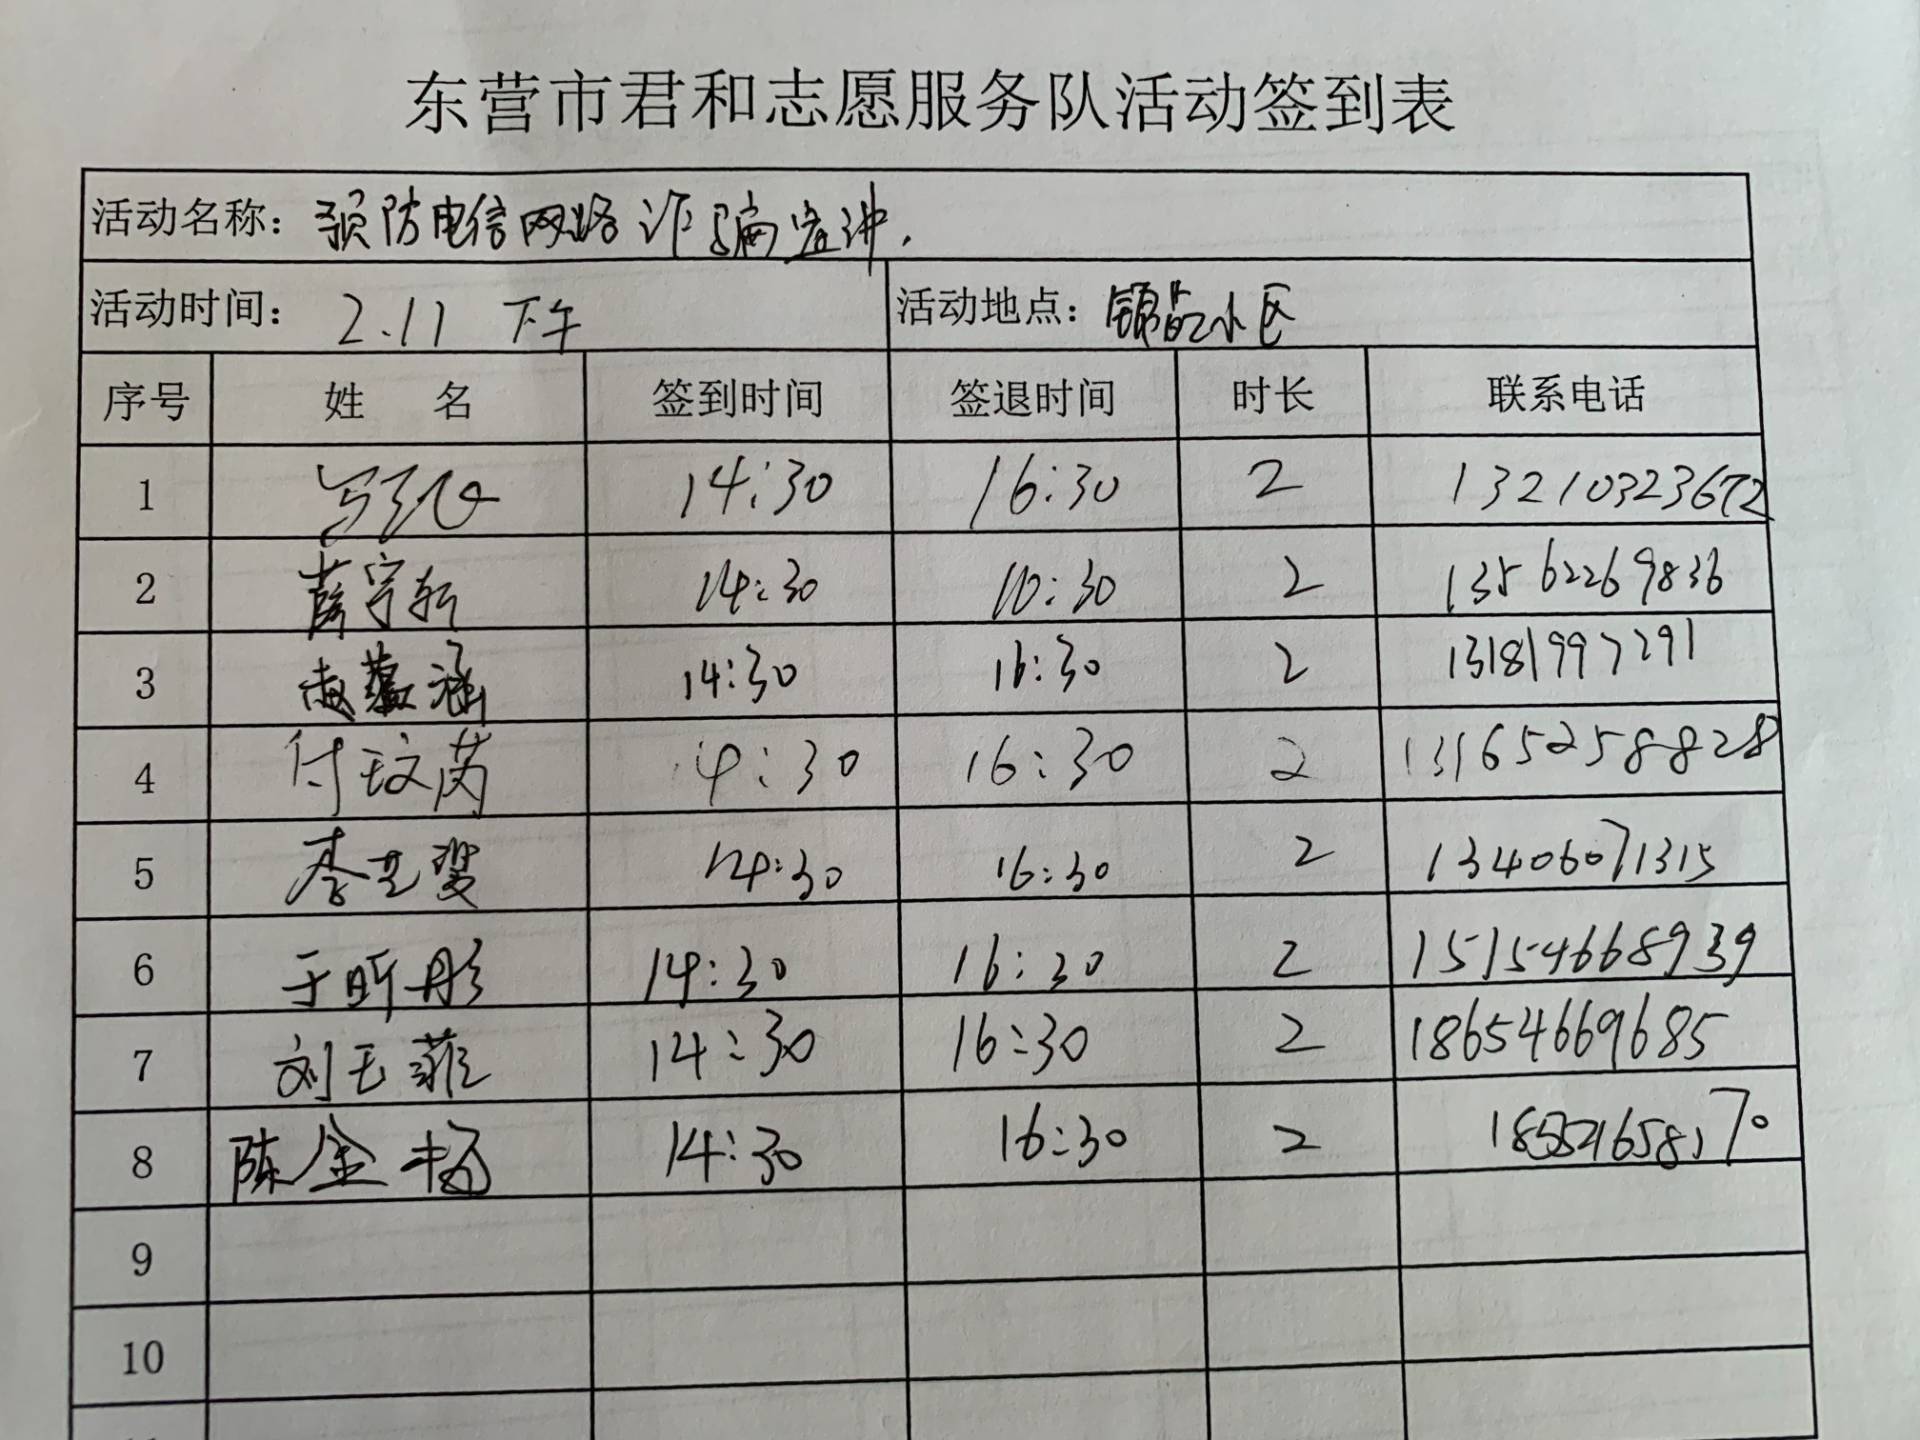 东营市君和志愿服务队活动签到表
活动名称：预防电信网络诈骗宣讲.
活动时间：2.11 下午 活动地点：锦苑小区
序号 姓 名 签到时间 签退时间 时长 联系电话
1 14:30 16:30 2 13210323672
2 薛宇轩 14:30 16:30 2 13562269836
3 14:30 16:30 2 13181997291
4 付玟芮 14:30 16:30 2 13165258828
5 李艺斐 14:30 16:30 2 13406071315
6 于昕彤 14:30 16:30 2 15154668939
7 刘玉菲 14:30 16:30 2 18654669685
8 陈金杨 14:30 16:30 2
9
10